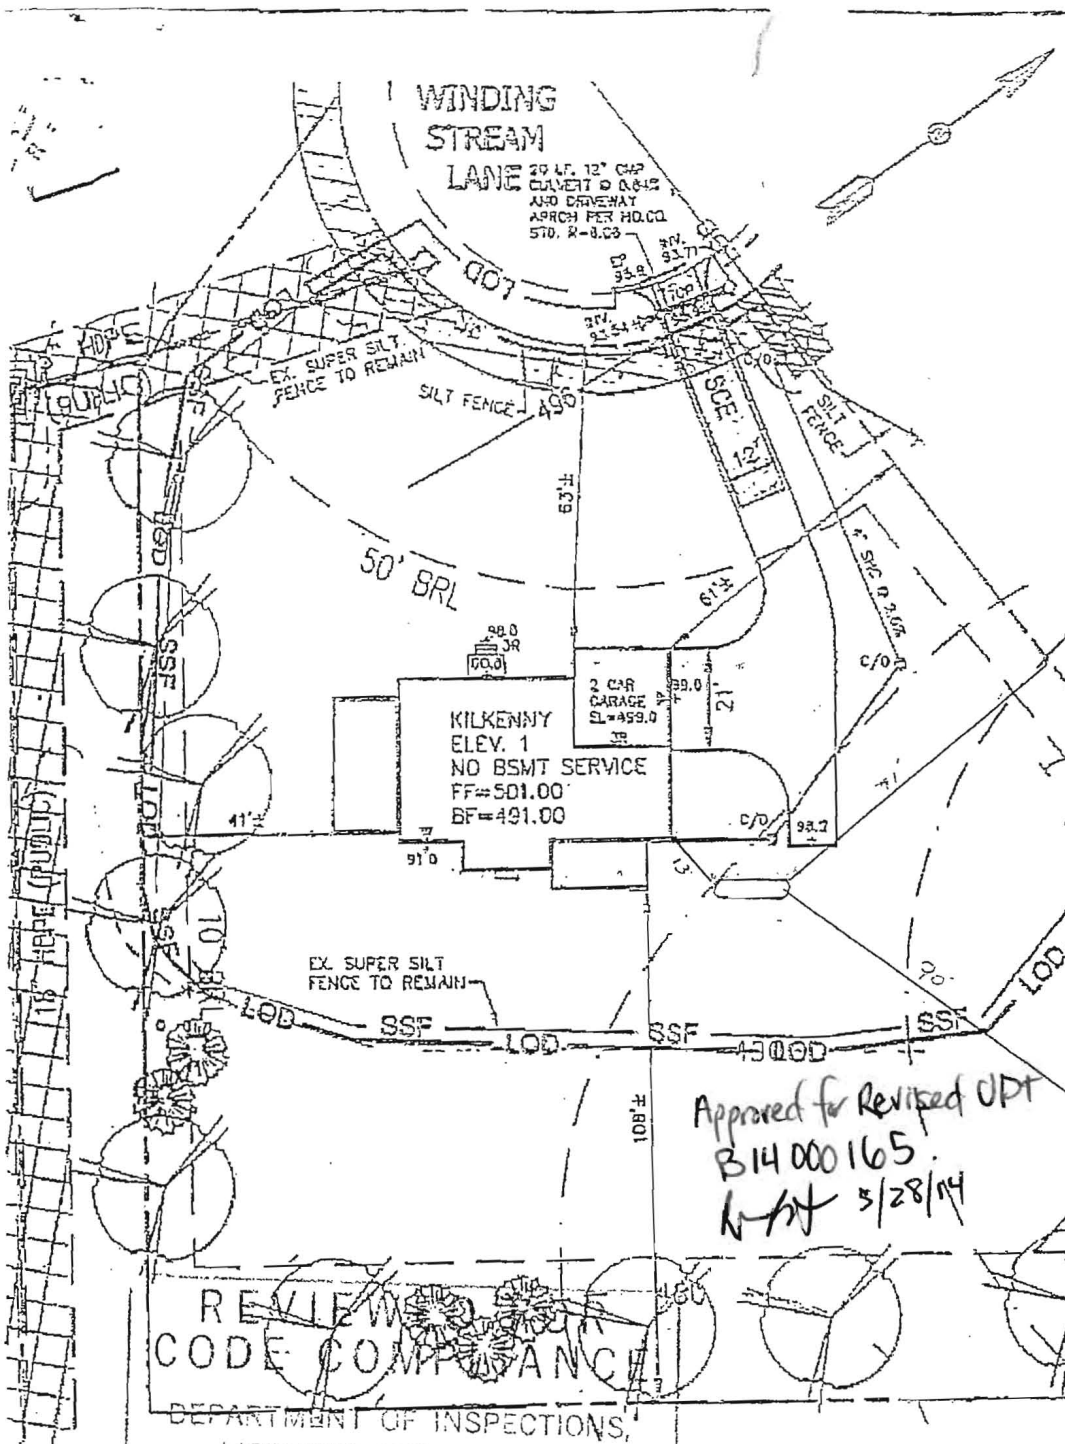 WINDING
STREAM
LANE
20 LF. 12" CMP
CULVERT @ 0.84%
AND DRIVEWAY
APRCH PER HO.CO.
STD. R-6.03
EP
93.8
INV.
93.77
INV.
LOD
C/O
HDPE
(PUBLIC)
SSF
EX. SUPER SILT
FENCE TO REMAIN
SILT FENCE
496
SCE
12'
SILT
FENCE
LOD
63'±
50' BRL
61'±
4" SHC @ 2.0%
C/O
98.0
3R
00.8
2 CAR
GARAGE
EL=499.0
3R
99.0
21'
KILKENNY
ELEV. 1
NO BSMT SERVICE
FF=501.00
BF=491.00
SSF
LOD
41'±
91.0
C/O
98.2
13
SSF
10'
BRL
18' HDPE (PUBLIC)
EX. SUPER SILT
FENCE TO REMAIN
90'
LOD
SSF
LOD
SSF
490
LOD
SSF
LOD
108'±
Approved for Revised UPT
B14000165.
5/28/14
480
REVIEWED FOR
CODE COMPLIANCE
DEPARTMENT OF INSPECTIONS,